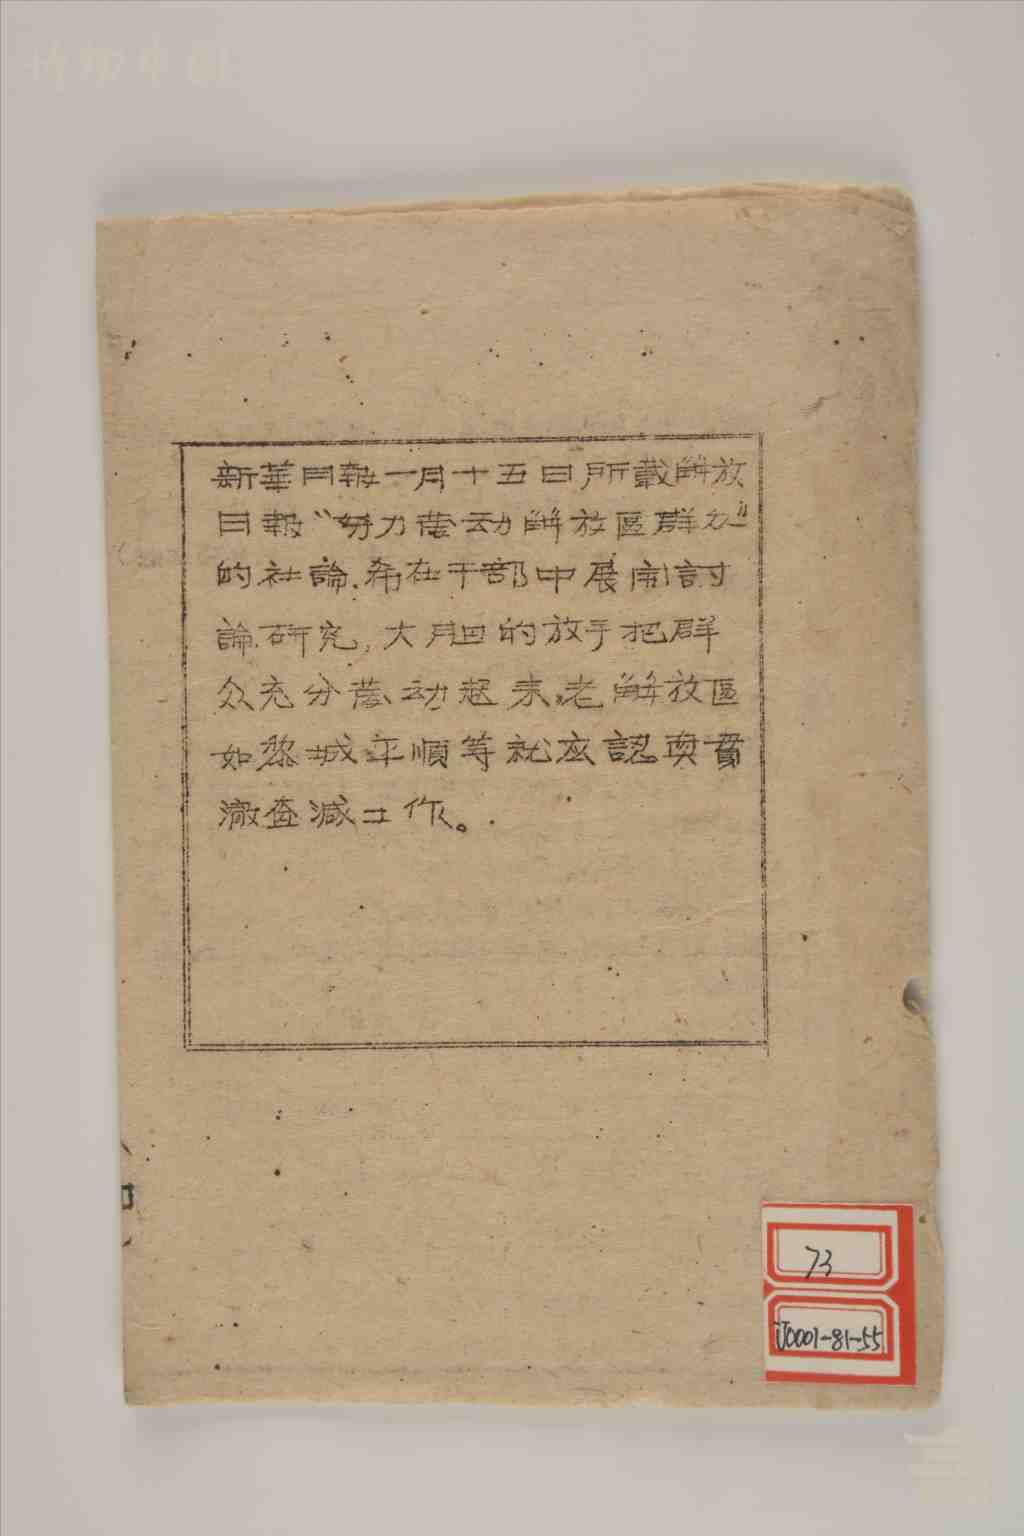 新華日報一月十五日所載解放
日報“努力發动解放區群众”
的社論.希在干部中展開討
論.研究,大胆的放手把群
众充分發动起来,老解放區
如黎城平順等就应認真貫
澈查减工作。
73
J0001-81-55